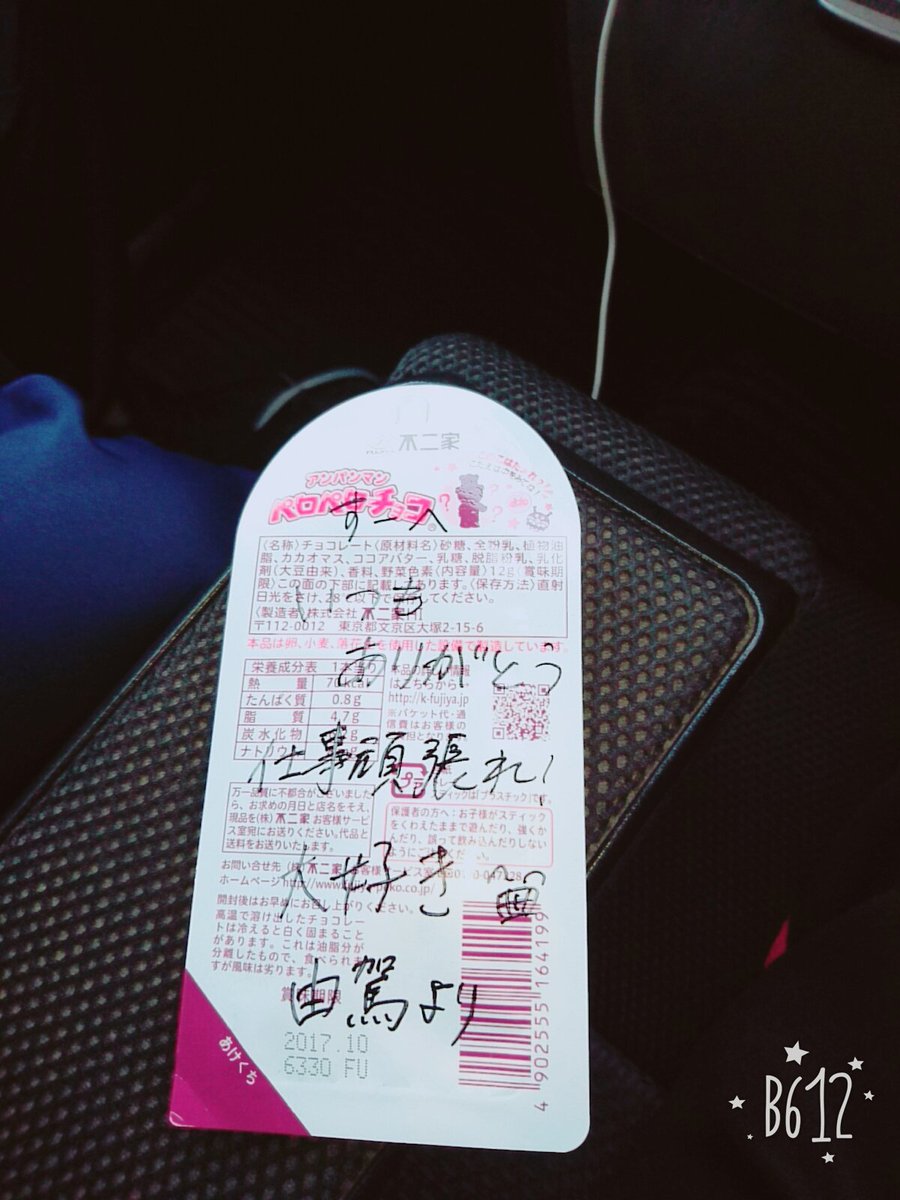 不二家
アンパンマン
ペロペロチョコ
すーへ
〈名称〉チョコレート〈原材料名〉砂糖、全粉乳、植物油
脂、カカオマス、ココアバター、乳糖、脱脂粉乳、乳化
剤(大豆由来)、香料、野菜色素〈内容量〉12g〈賞味期
限〉この面の下部に記載してあります。〈保存方法〉直射
日光をさけ、28℃以下で保存してください。
いつも
〈製造者〉株式会社 不二家
〒112-0012 東京都文京区大塚2-15-6
本品は卵、小麦、落花生を使用した設備で製造しています。
ありがとう
栄養成分表 1本当り
熱量 70kcal
たんぱく質 0.8g
脂質 4.7g
炭水化物
ナトリウム
本品の 情報
はこちらから
http://k-fujiya.jp
※パケット代・通
信費はお客様の
仕事頑張れ!
プラ
スティックは「プラスチック」です。
万一品質に不都合がございましたら
、お求めの月日と店名をそえ、
現品を(株)不二家お客様サービ
ス室宛にお送りください。代品と
送料をお送りいたします。
保護者の方へ:お子様がスティック
をくわえたままで遊んだり、強くか
んだり、誤って飲み込んだりしない
ようにご注意ください。
お問い合せ先 (株)不二家 お客様サービス室
大好き
ホームページ
開封後はお早めにお召し上がりください。
高温で溶け出したチョコレー
トは冷えると白く固まること
があります。これは油脂分が
分離したもので、食べられま
すが風味は劣ります。
由駕より
賞味期限
2017.10
6330 FU
あけくち
4 902555 164199
B612